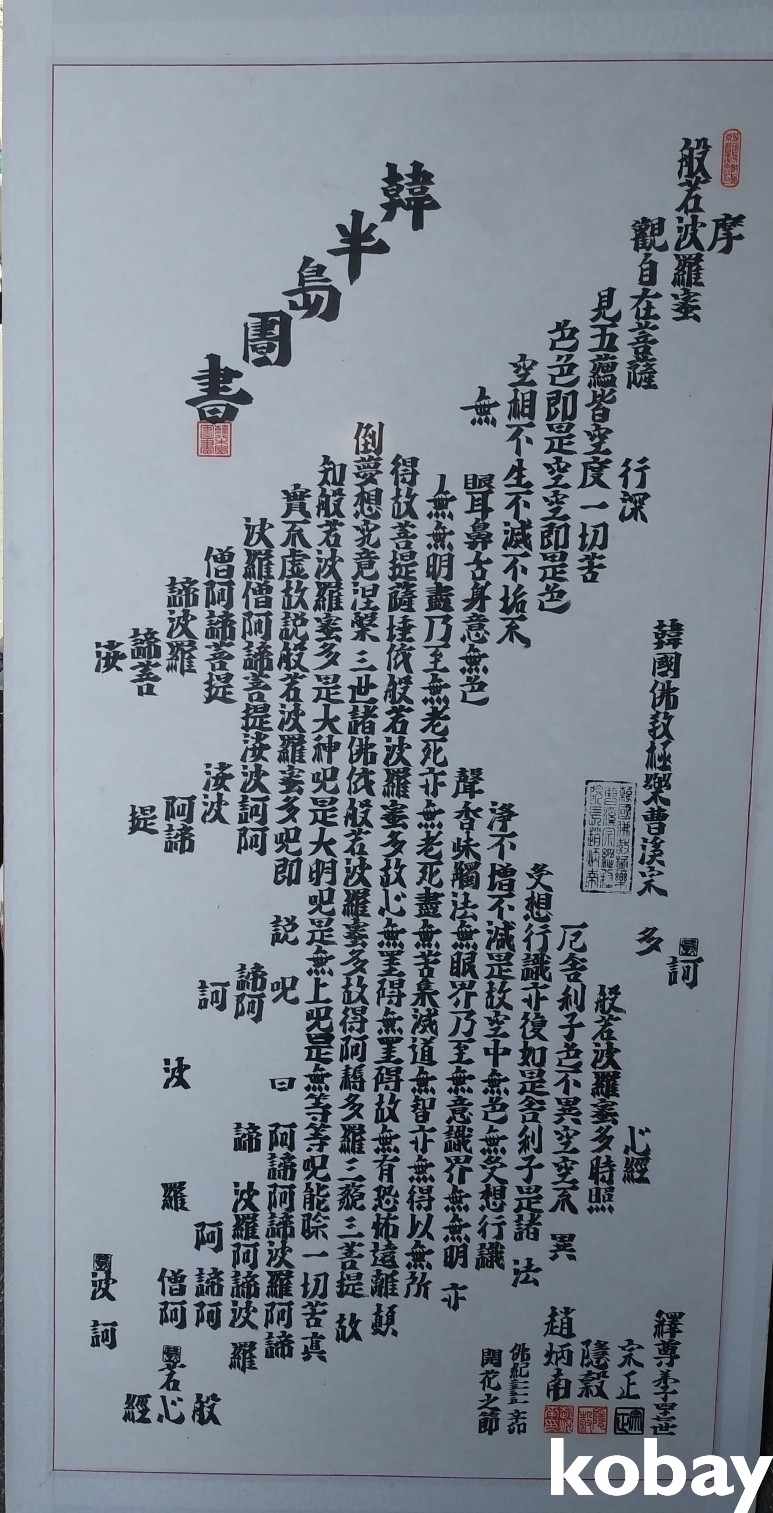 韓半島圖書
摩
般若波羅蜜
訶
觀自在菩薩
行深
多
心經
見五蘊皆空度一切苦
般若波羅蜜多時照
色色即是空空即是色
厄舍利子色不異空空不異
空相不生不滅不垢不
受想行識亦復如是舍利子是諸法
無
淨不增不減是故空中無色無受想行識
眼耳鼻舌身意無色
聲香味觸法無眼界乃至無意識界無無明亦
無無明盡乃至無老死亦無老死盡無苦集滅道無智亦無得以無所
得故菩提薩埵依般若波羅蜜多故心無罣得無罣得故無有恐怖遠離顛
倒夢想究竟涅槃三世諸佛依般若波羅蜜多故得阿耨多羅三藐三菩提故
知般若波羅蜜多是大神呪是大明呪是無上呪是無等等呪能除一切苦真
實不虛故說般若波羅蜜多呪即說呪曰阿諦阿諦波羅阿諦
波羅僧阿諦菩提娑波訶阿諦阿諦波羅阿諦波羅
僧阿諦菩提娑波訶阿諦阿
諦波羅阿諦波羅僧阿
諦菩提
娑波訶
般若心經
韓國佛敎極樂曹溪宗
釋尊弟子世
宗正
隱穀
趙炳南
佛紀辛卯
開花之節
kobay